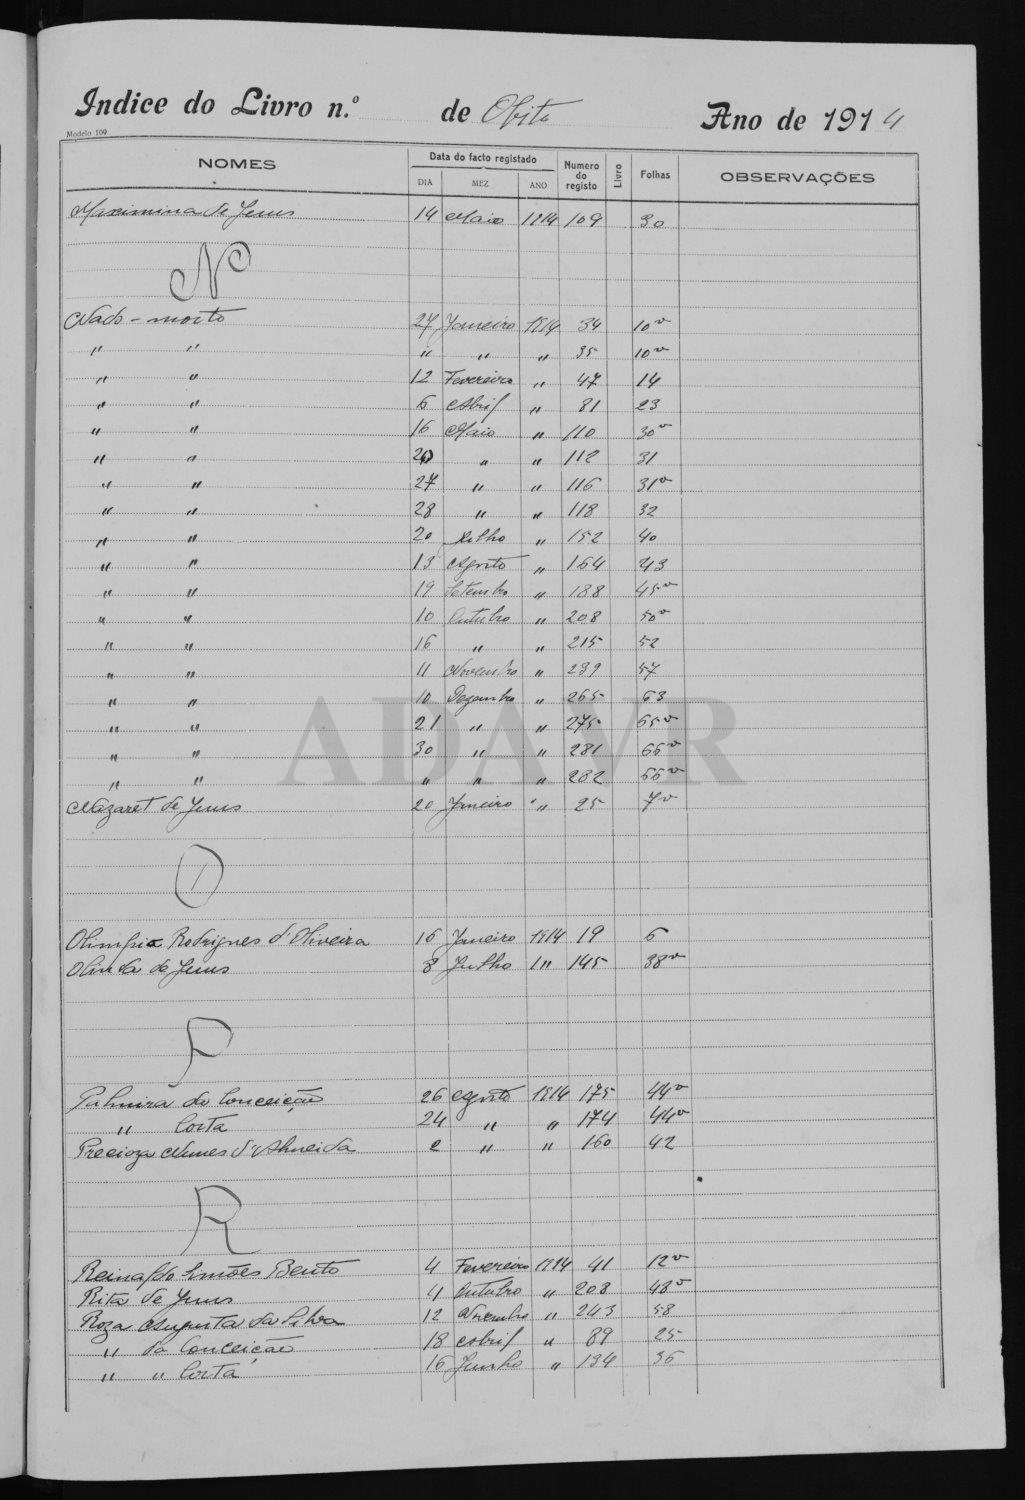 Indice do Livro n.º de Obito Ano de 1914
Modelo 109
NOMES Data do facto registado Numero do registo Livro Folhas OBSERVAÇÕES
DIA MEZ ANO
Maximina de Jesus 14 Maio 1914 109 30
N
Nado-morto 27 Janeiro 1914 34 10v
" " " " " 35 10v
" " 12 Fevereiro " 47 14
" " 6 Abril " 81 23
" " 16 Maio " 110 30v
" " 20 " " 112 31
" " 27 " " 116 31v
" " 28 " " 118 32
" " 20 Julho " 152 40
" " 13 Agosto " 164 43
" " 19 Setembro " 188 45v
" " 10 Outubro " 208 50v
" " 16 " " 215 52
" " 11 Novembro " 239 57
" " 10 Dezembro " 265 63
" " 21 " " 275 65v
" " 30 " " 281 66v
" " " " " 282 66v
Nazaret de Jesus 20 Janeiro " 25 7v
O
Olimpia Rodrigues d'Oliveira 16 Janeiro 1914 19 6
Olinda de Jesus 8 Julho 1" 145 38v
P
Palmira da Conceição 26 Agosto 1914 175 44v
" Costa 24 " " 174 44v
Precioza Nunes d'Almeida 2 " " 160 42
R
Reinaldo Simões Bento 4 Fevereiro 1914 41 12v
Rita de Jesus 4 Outubro " 208 48v
Roza Augusta da Silva 12 Novembro " 243 58
" da Conceição 18 Abril " 89 25
" " Costa 16 Junho " 134 36
ADAVR